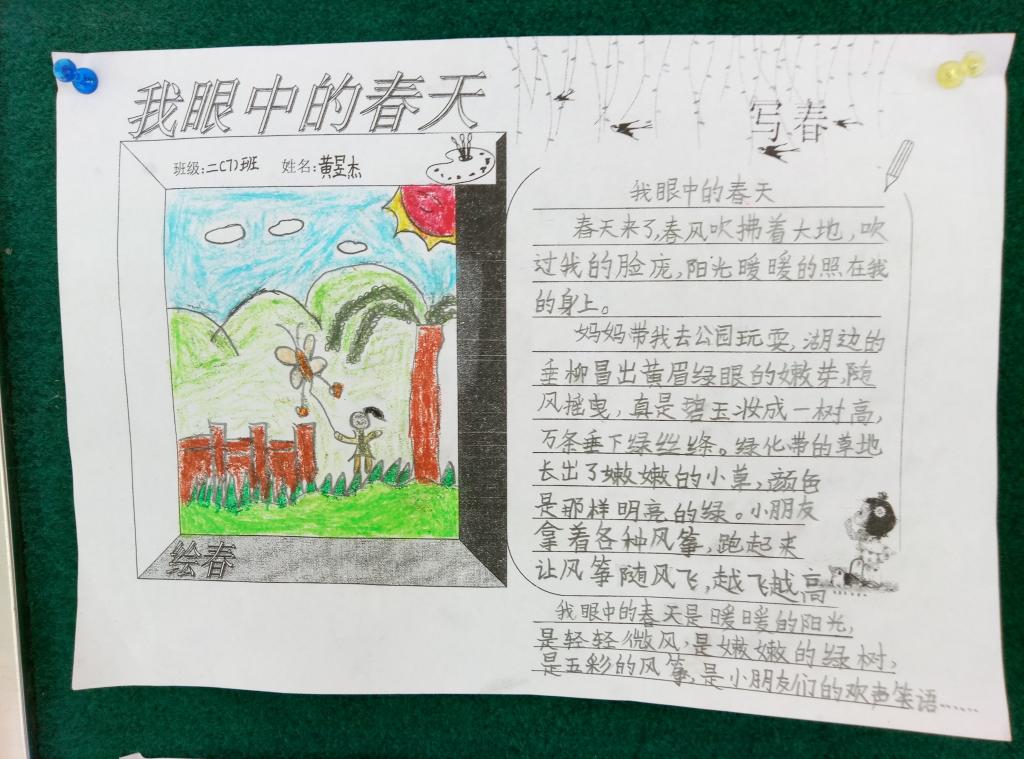 我眼中的春天
班级:二(7)班 姓名:黄昱杰
绘春
写春
我眼中的春天
春天来了,春风吹拂着大地,吹
过我的脸庞,阳光暖暖的照在我
的身上。
妈妈带我去公园玩耍,湖边的
垂柳冒出黄眉绿眼的嫩芽,随
风摇曳,真是碧玉妆成一树高,
万条垂下绿丝绦。绿化带的草地
长出了嫩嫩的小草,颜色
是那样明亮的绿。小朋友
拿着各种风筝,跑起来
让风筝随风飞,越飞越高……
我眼中的春天是暖暖的阳光,
是轻轻微风,是嫩嫩的绿树,
是五彩的风筝,是小朋友们的欢声笑语……